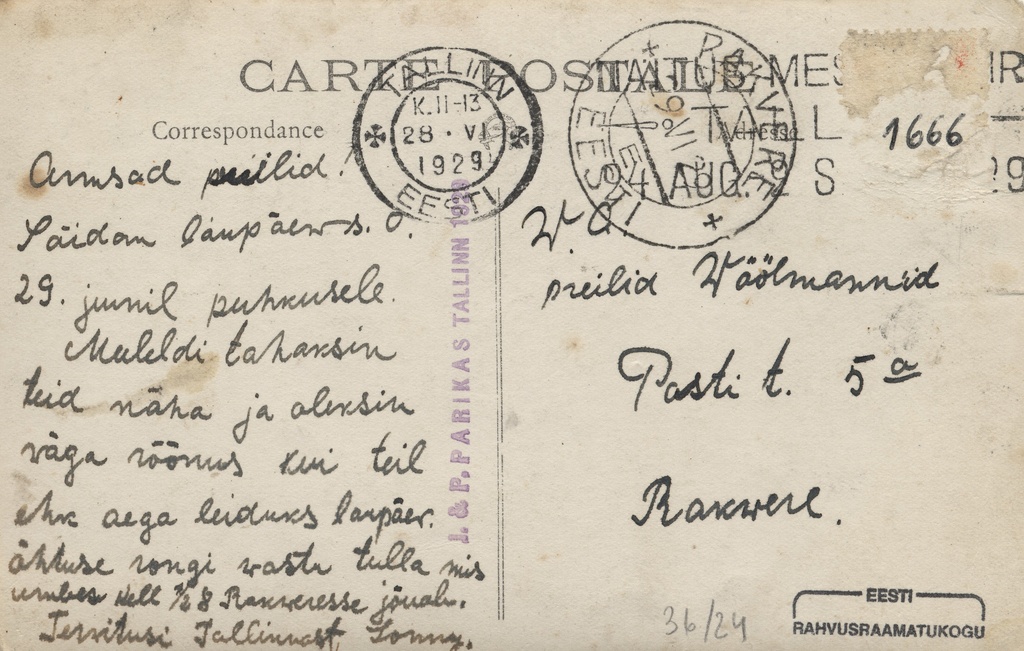 CARTE POSTALE
TALLINN
K.11-13
28 · VI
1929
EESTI
RAKVERE
EESTI
NÄITUS-MES
TALL
24 AUG. 2 S
1666
Correspondance
Adresse
J. & P. PARIKAS TALLINN 1929
Armsad preilid!
Sõidan laupäew s. o.
29. juunil puhkusele.
Muleldi tahaksin
teid näha ja oleksin
väga rõõmus kui teil
ehk aega leiduks laupäev.
õhtuse rongi wastu tulla mis
umbes kell ½ 8 Rakweresse jõuab.
Tervitusi Tallinnast, Sonny.
W. A.
preilid Wöölmannid
Posti t. 5a
Rakwere.
36/24
EESTI
RAHVUSRAAMATUKOGU